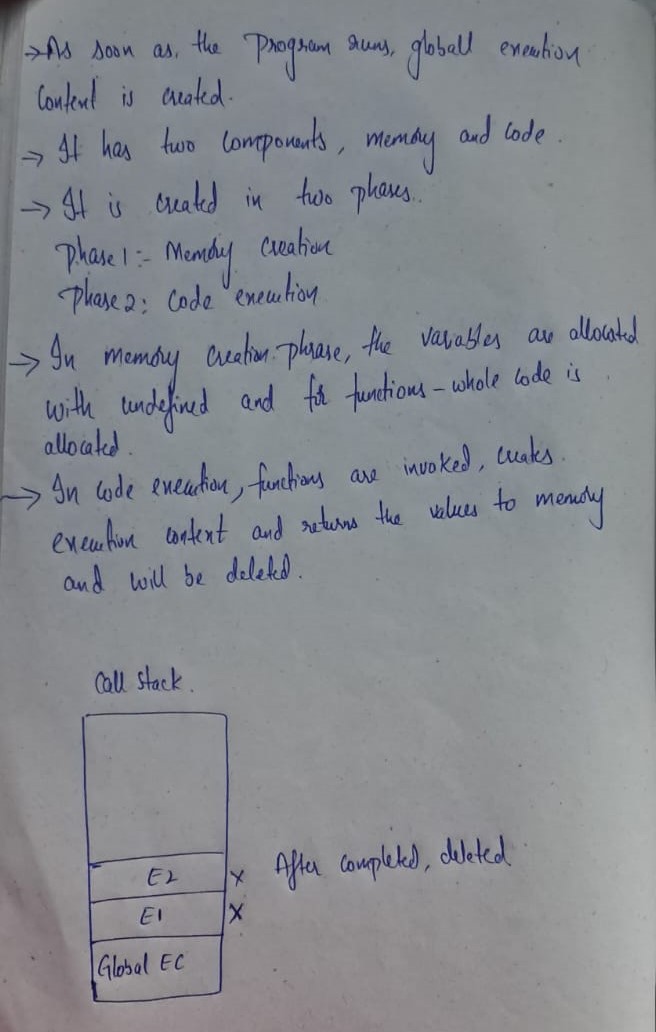 → As soon as, the Program runs, globall execution
Content is created.
→ It has two Components, memory and code.
→ It is created in two phases.
Phase 1 :- Memory Creation
Phase 2: Code execution
→ In memory creation phrase, the variables are allocated
with undefined and for functions - whole code is
allocated.
→ In code execution, functions are invoked, creates.
execution content and returns the values to memory
and will be deleted.
Call Stack.
E2 x After completed, deleted
E1 x
Global EC